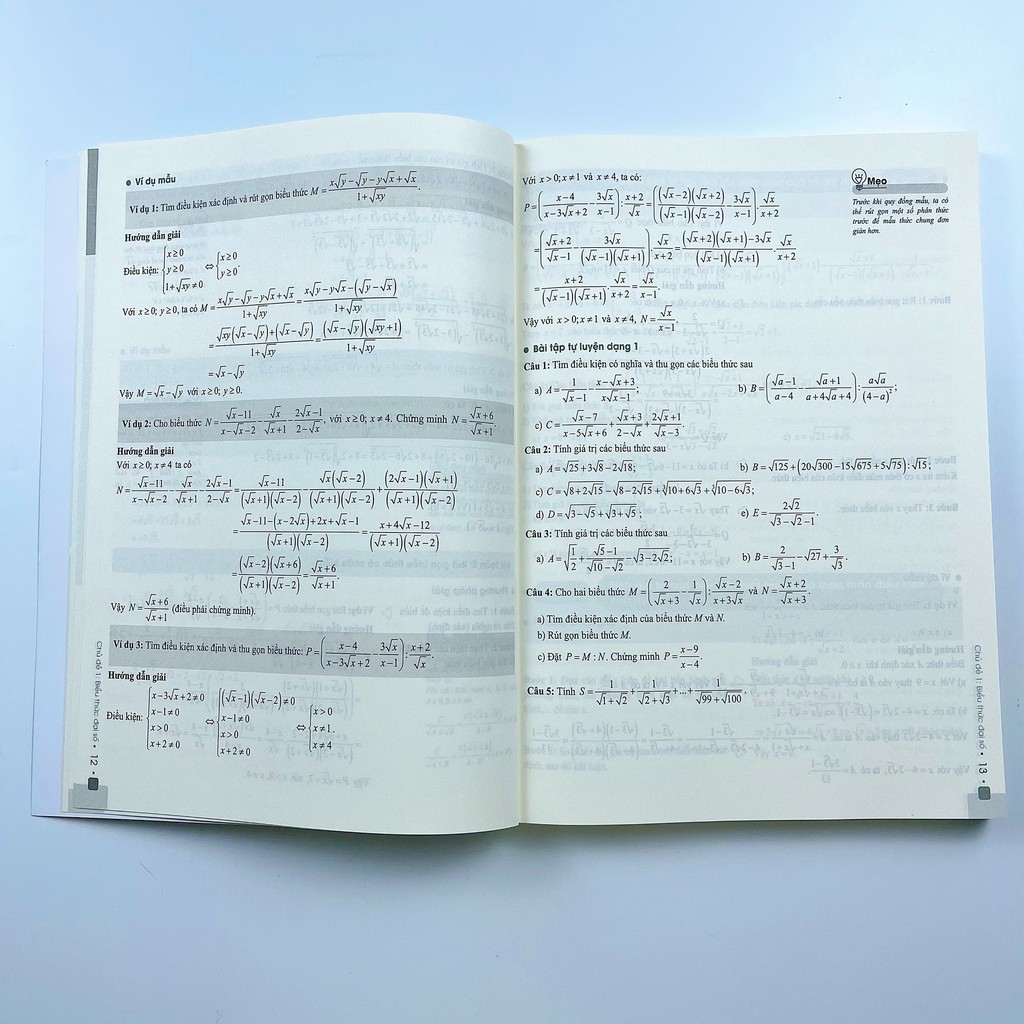 • Ví dụ mẫu
Ví dụ 1: Tìm điều kiện xác định và rút gọn biểu thức M = (x√y − √y − y√x + √x)/(1+√xy).
Hướng dẫn giải
Điều kiện: {x ≥ 0; y ≥ 0; 1+√xy ≠ 0 ⇔ {x ≥ 0; y ≥ 0.
Với x ≥ 0; y ≥ 0, ta có M = (x√y − √y − y√x + √x)/(1+√xy) = (x√y − y√x − (√y − √x))/(1+√xy)
= (√xy(√x − √y) + (√x − √y))/(1+√xy) = ((√x − √y)(√xy + 1))/(1+√xy)
= √x − √y
Vậy M = √x − √y với x ≥ 0; y ≥ 0.
Ví dụ 2: Cho biểu thức N = (√x − 11)/(x − √x − 2) − √x/(√x + 1) − (2√x − 1)/(2 − √x), với x ≥ 0; x ≠ 4. Chứng minh N = (√x + 6)/(√x + 1).
Hướng dẫn giải
Với x ≥ 0; x ≠ 4 ta có
N = (√x − 11)/(x − √x − 2) − √x/(√x + 1) − (2√x − 1)/(2 − √x) = (√x − 11)/((√x + 1)(√x − 2)) − (√x(√x − 2))/((√x + 1)(√x − 2)) + ((2√x − 1)(√x + 1))/((√x + 1)(√x − 2))
= (√x − 11 − (x − 2√x) + 2x + √x − 1)/((√x + 1)(√x − 2)) = (x + 4√x − 12)/((√x + 1)(√x − 2))
= ((√x − 2)(√x + 6))/((√x + 1)(√x − 2)) = (√x + 6)/(√x + 1).
Vậy N = (√x + 6)/(√x + 1) (điều phải chứng minh).
Ví dụ 3: Tìm điều kiện xác định và thu gọn biểu thức: P = ((x − 4)/(x − 3√x + 2) − 3√x/(x − 1)) : (x + 2)/√x.
Hướng dẫn giải
Điều kiện: {x − 3√x + 2 ≠ 0; x − 1 ≠ 0; x > 0; x + 2 ≠ 0 ⇔ {(√x − 1)(√x − 2) ≠ 0; x − 1 ≠ 0; x > 0; x + 2 ≠ 0 ⇔ {x > 0; x ≠ 1; x ≠ 4.
Chủ đề 1: Biểu thức đại số • 12 •
Với x > 0; x ≠ 1 và x ≠ 4, ta có:
P = ((x − 4)/(x − 3√x + 2) − 3√x/(x − 1)) : (x + 2)/√x = (((√x − 2)(√x + 2))/((√x − 1)(√x − 2)) − 3√x/(x − 1)) . √x/(x + 2)
= ((√x + 2)/(√x − 1) − 3√x/((√x − 1)(√x + 1))) . √x/(x + 2) = ((√x + 2)(√x + 1) − 3√x)/((√x − 1)(√x + 1)) . √x/(x + 2)
= (x + 2)/((√x − 1)(√x + 1)) . √x/(x + 2) = √x/(x − 1).
Vậy với x > 0; x ≠ 1 và x ≠ 4, N = √x/(x − 1).
Mẹo
Trước khi quy đồng mẫu, ta có
thể rút gọn một số phân thức
trước để mẫu thức chung đơn
giản hơn.
• Bài tập tự luyện dạng 1
Câu 1: Tìm điều kiện có nghĩa và thu gọn các biểu thức sau
a) A = 1/(√x − 1) − (x − √x + 3)/(x√x − 1); b) B = ((√a − 1)/(a − 4) − (√a + 1)/(a + 4√a + 4)) : a√a/(4 − a)²;
c) C = (√x − 7)/(x − 5√x + 6) + (√x + 3)/(2 − √x) + (2√x + 1)/(√x − 3).
Câu 2: Tính giá trị các biểu thức sau
a) A = √25 + 3√8 − 2√18; b) B = √125 + (20√300 − 15√675 + 5√75) : √15;
c) C = √(8 + 2√15) − √(8 − 2√15) + ∛(10 + 6√3) + ∛(10 − 6√3);
d) D = √(3 − √5) + √(3 + √5); e) E = 2√2/(√3 − √2 − 1).
Câu 3: Tính giá trị các biểu thức sau
a) A = √(1/2) + (√5 − 1)/(√10 − √2) − √(3 − 2√2); b) B = 2/(√3 − 1) − √27 + 3/√3.
Câu 4: Cho hai biểu thức M = (2/(√x + 3) − 1/√x) : (√x − 2)/(x + 3√x) và N = (√x + 2)/(√x + 3).
a) Tìm điều kiện xác định của biểu thức M và N.
b) Rút gọn biểu thức M.
c) Đặt P = M : N. Chứng minh P = (x − 9)/(x − 4).
Câu 5: Tính S = 1/(√1 + √2) + 1/(√2 + √3) + ... + 1/(√99 + √100).
Chủ đề 1: Biểu thức đại số • 13 •